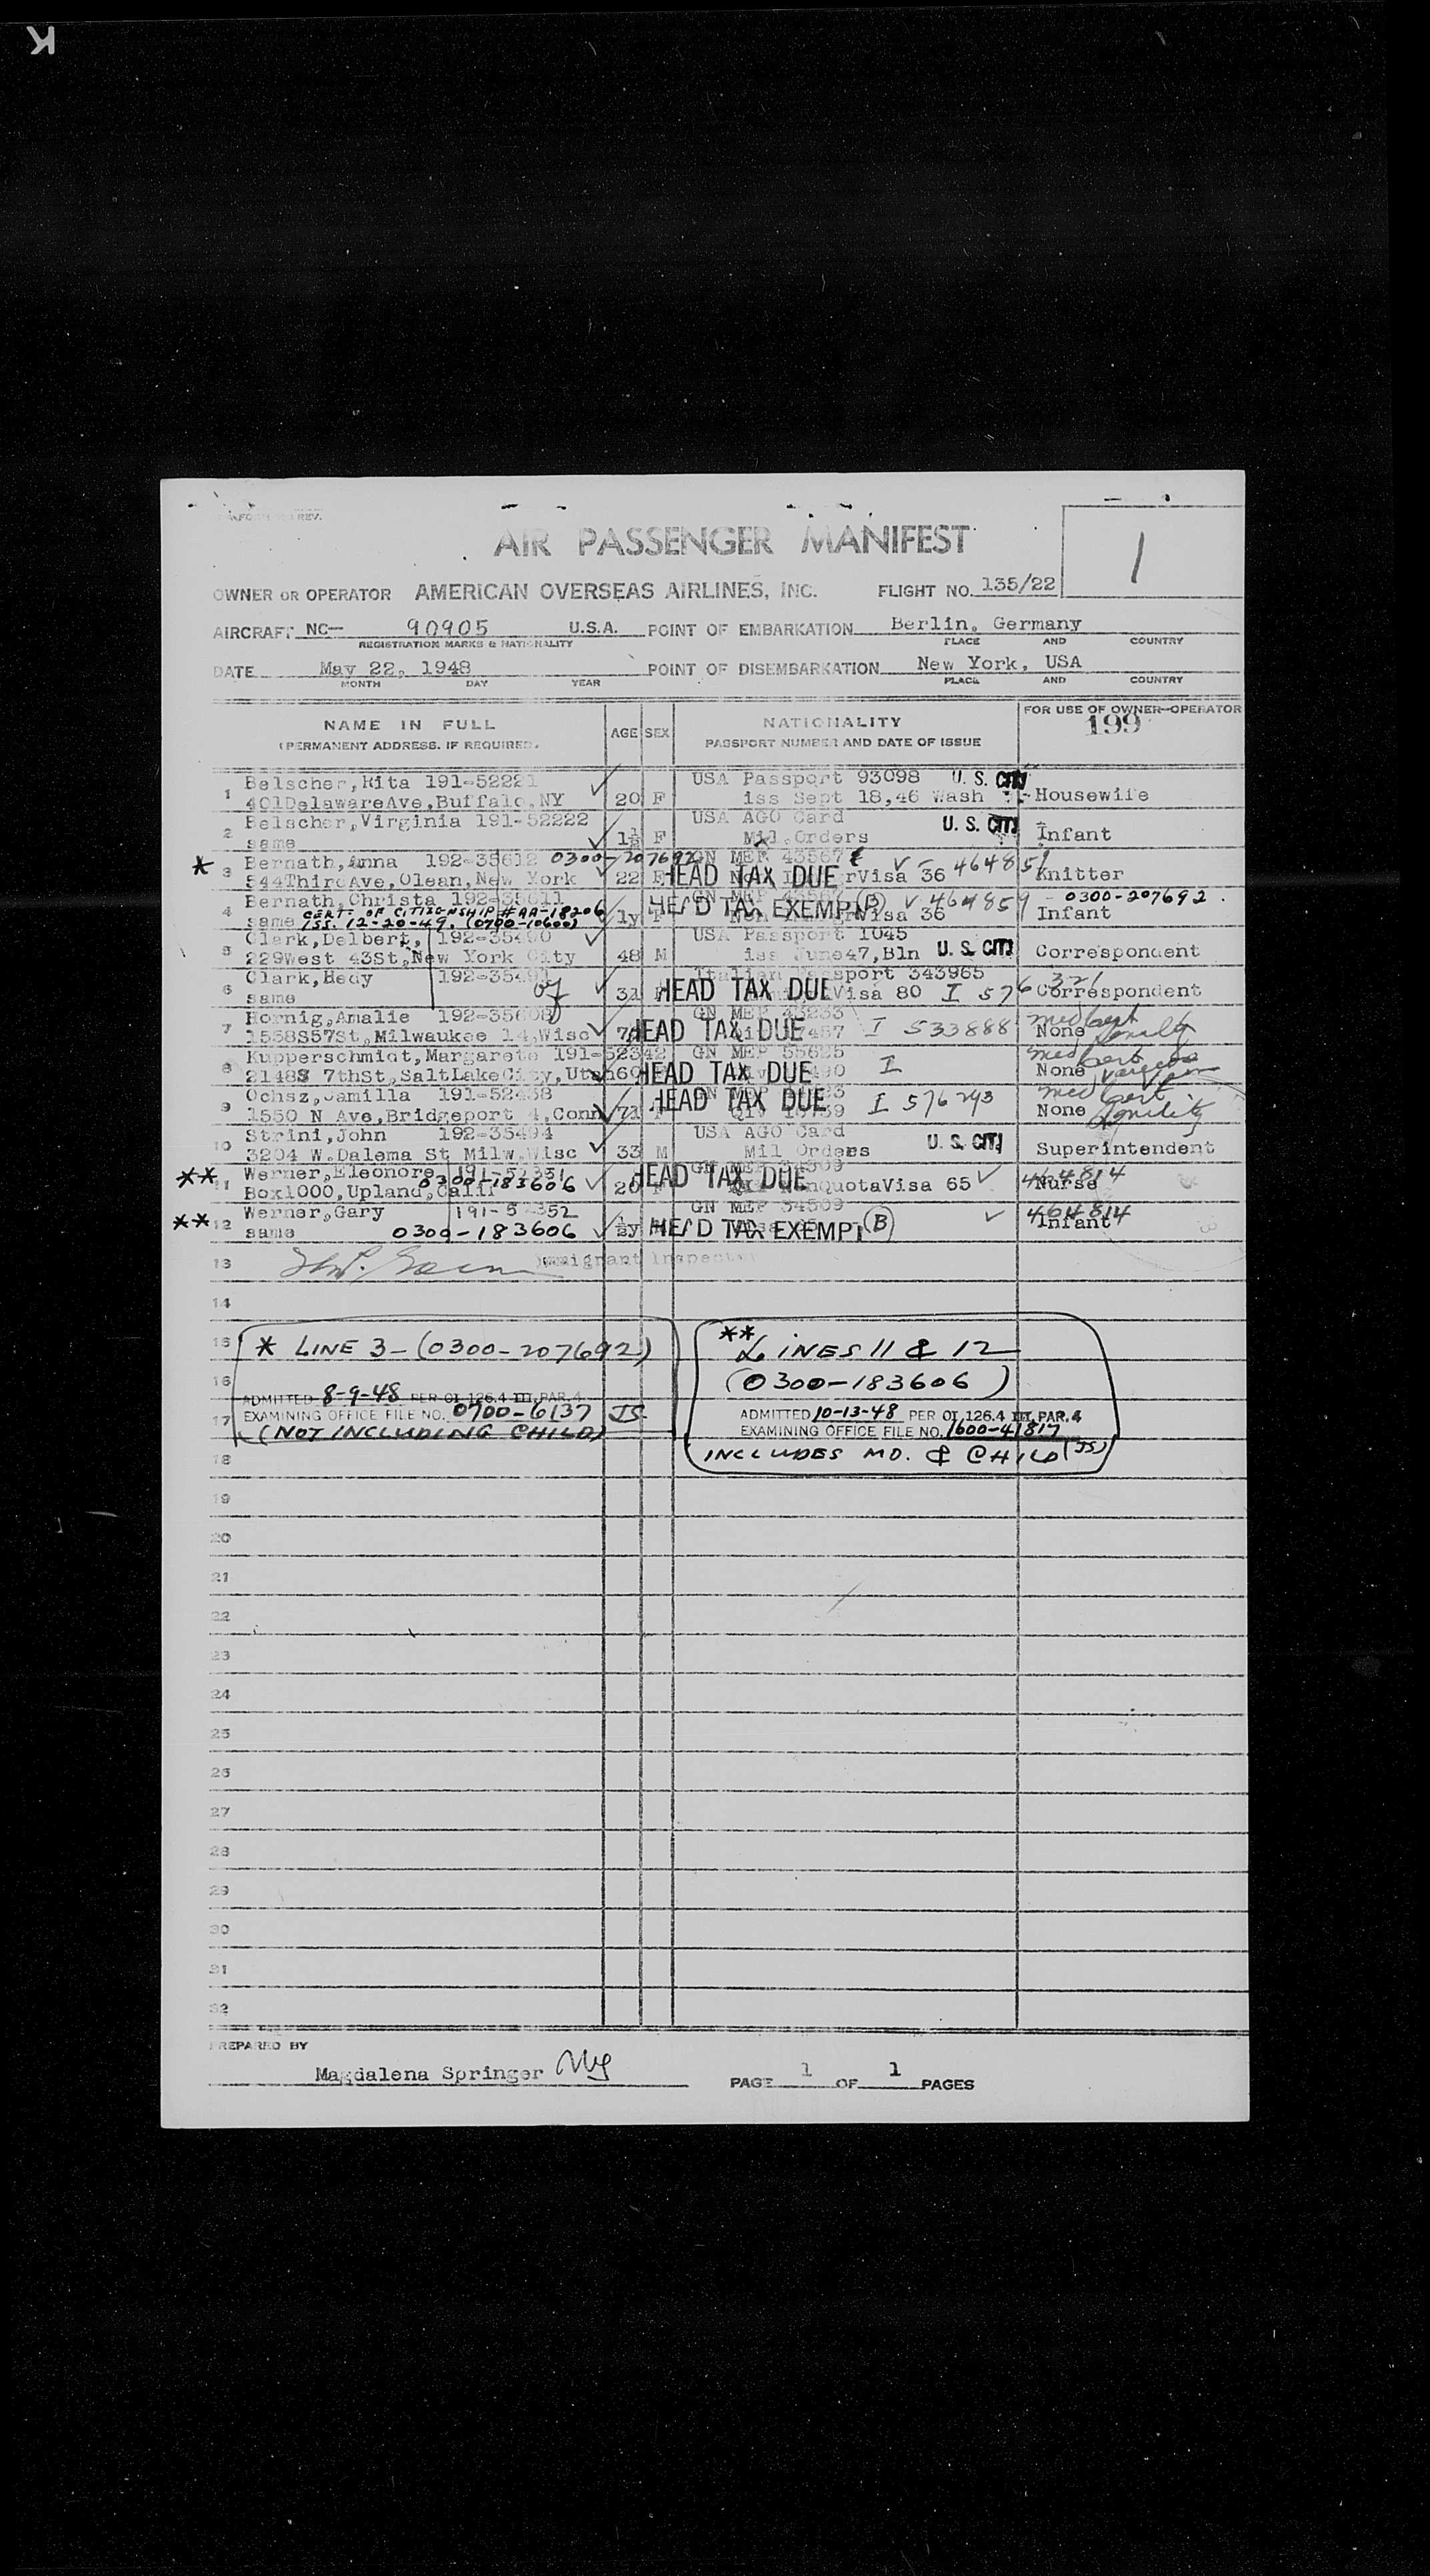 K
REV.
AIR PASSENGER MANIFEST
1
OWNER OR OPERATOR AMERICAN OVERSEAS AIRLINES, INC. FLIGHT NO. 135/22
AIRCRAFT NC— 90905 U.S.A. POINT OF EMBARKATION Berlin, Germany
REGISTRATION MARKS & NATIONALITY PLACE AND COUNTRY
DATE May 22, 1948 POINT OF DISEMBARKATION New York, USA
MONTH DAY YEAR PLACE AND COUNTRY
NAME IN FULL AGE SEX NATIONALITY FOR USE OF OWNER-OPERATOR
(PERMANENT ADDRESS, IF REQUIRED. PASSPORT NUMBER AND DATE OF ISSUE 199
Belscher,Rita 191-52221 USA Passport 93098 U. S. CITI
1 401DelawareAve,Buffalo,NY 20 F iss Sept 18,46 Wash Housewife
Belscher,Virginia 191-52222 USA AGO Card U. S. CITI
2 same 1½ F Mil.Orders Infant
* Bernath,Anna 192-35612 0300-207692 GN MEP 43567
3 544ThirdAve,Olean,New York 22 F HEAD TAX DUE Visa 36 V-464851 Knitter
Bernath,Christa 192-35611 HEAD TAX EXEMPT (B) V 464859 0300-207692
4 same CERT. OF CITIZENSHIP #AA-18206 1y F Visa 36 Infant
ISS. 12-20-49. (0700-10600)
Clark,Delbert, 192-35490 USA Passport 1045
5 229West 43St,New York City 48 M iss June47,Bln U. S. CITI Correspondent
Clark,Hedy 192-35491 Italian Passport 343965
6 same 31 HEAD TAX DUE Visa 80 I 576 321 Correspondent
Hornig,Amalie 192-35608 GN MEP 45233 med cert
7 1558S57St,Milwaukee 14,Wisc HEAD TAX DUE I 533888 None senility
Kupperschmidt,Margarete 191-52342 GN MEP 55625 med cert
8 2148S 7thSt,SaltLakeCity,Utah HEAD TAX DUE I None
Ochsz,Jamilla 191-52438 med cert
9 1550 N Ave,Bridgeport 4,Conn 71 F HEAD TAX DUE I 576243 None senility
Strini,John 192-35494 USA AGO Card U. S. CITI
10 3204 W.Dalema St Milw.Wisc 33 M Mil Orders Superintendent
** Werner,Eleonore 191-52351 GN MEP 34509
11 Box1000,Upland,Calif 0300-183606 20 F HEAD TAX DUE QuotaVisa 65 464814 Nurse
Werner,Gary 191-52352 GN MEP 34509 464814
** 12 same 0300-183606 ½y HEAD TAX EXEMPT (B) Infant
13 Immigrant Inspector
14
15 * LINE 3-(0300-207692) ** LINES 11 & 12
16 (0300-183606)
ADMITTED 8-9-48 PER OI 126.4 III, PAR. 4
17 EXAMINING OFFICE FILE NO. 0700-6137 JS. ADMITTED 10-13-48 PER OI, 126.4 III, PAR. 4
(NOT INCLUDING CHILD) EXAMINING OFFICE FILE NO. 1600-41817
18 INCLUDES MO. & CHILD (JS)
19
20
21
22
23
24
25
26
27
28
29
30
31
32
PREPARED BY
Magdalena Springer PAGE 1 OF 1 PAGES